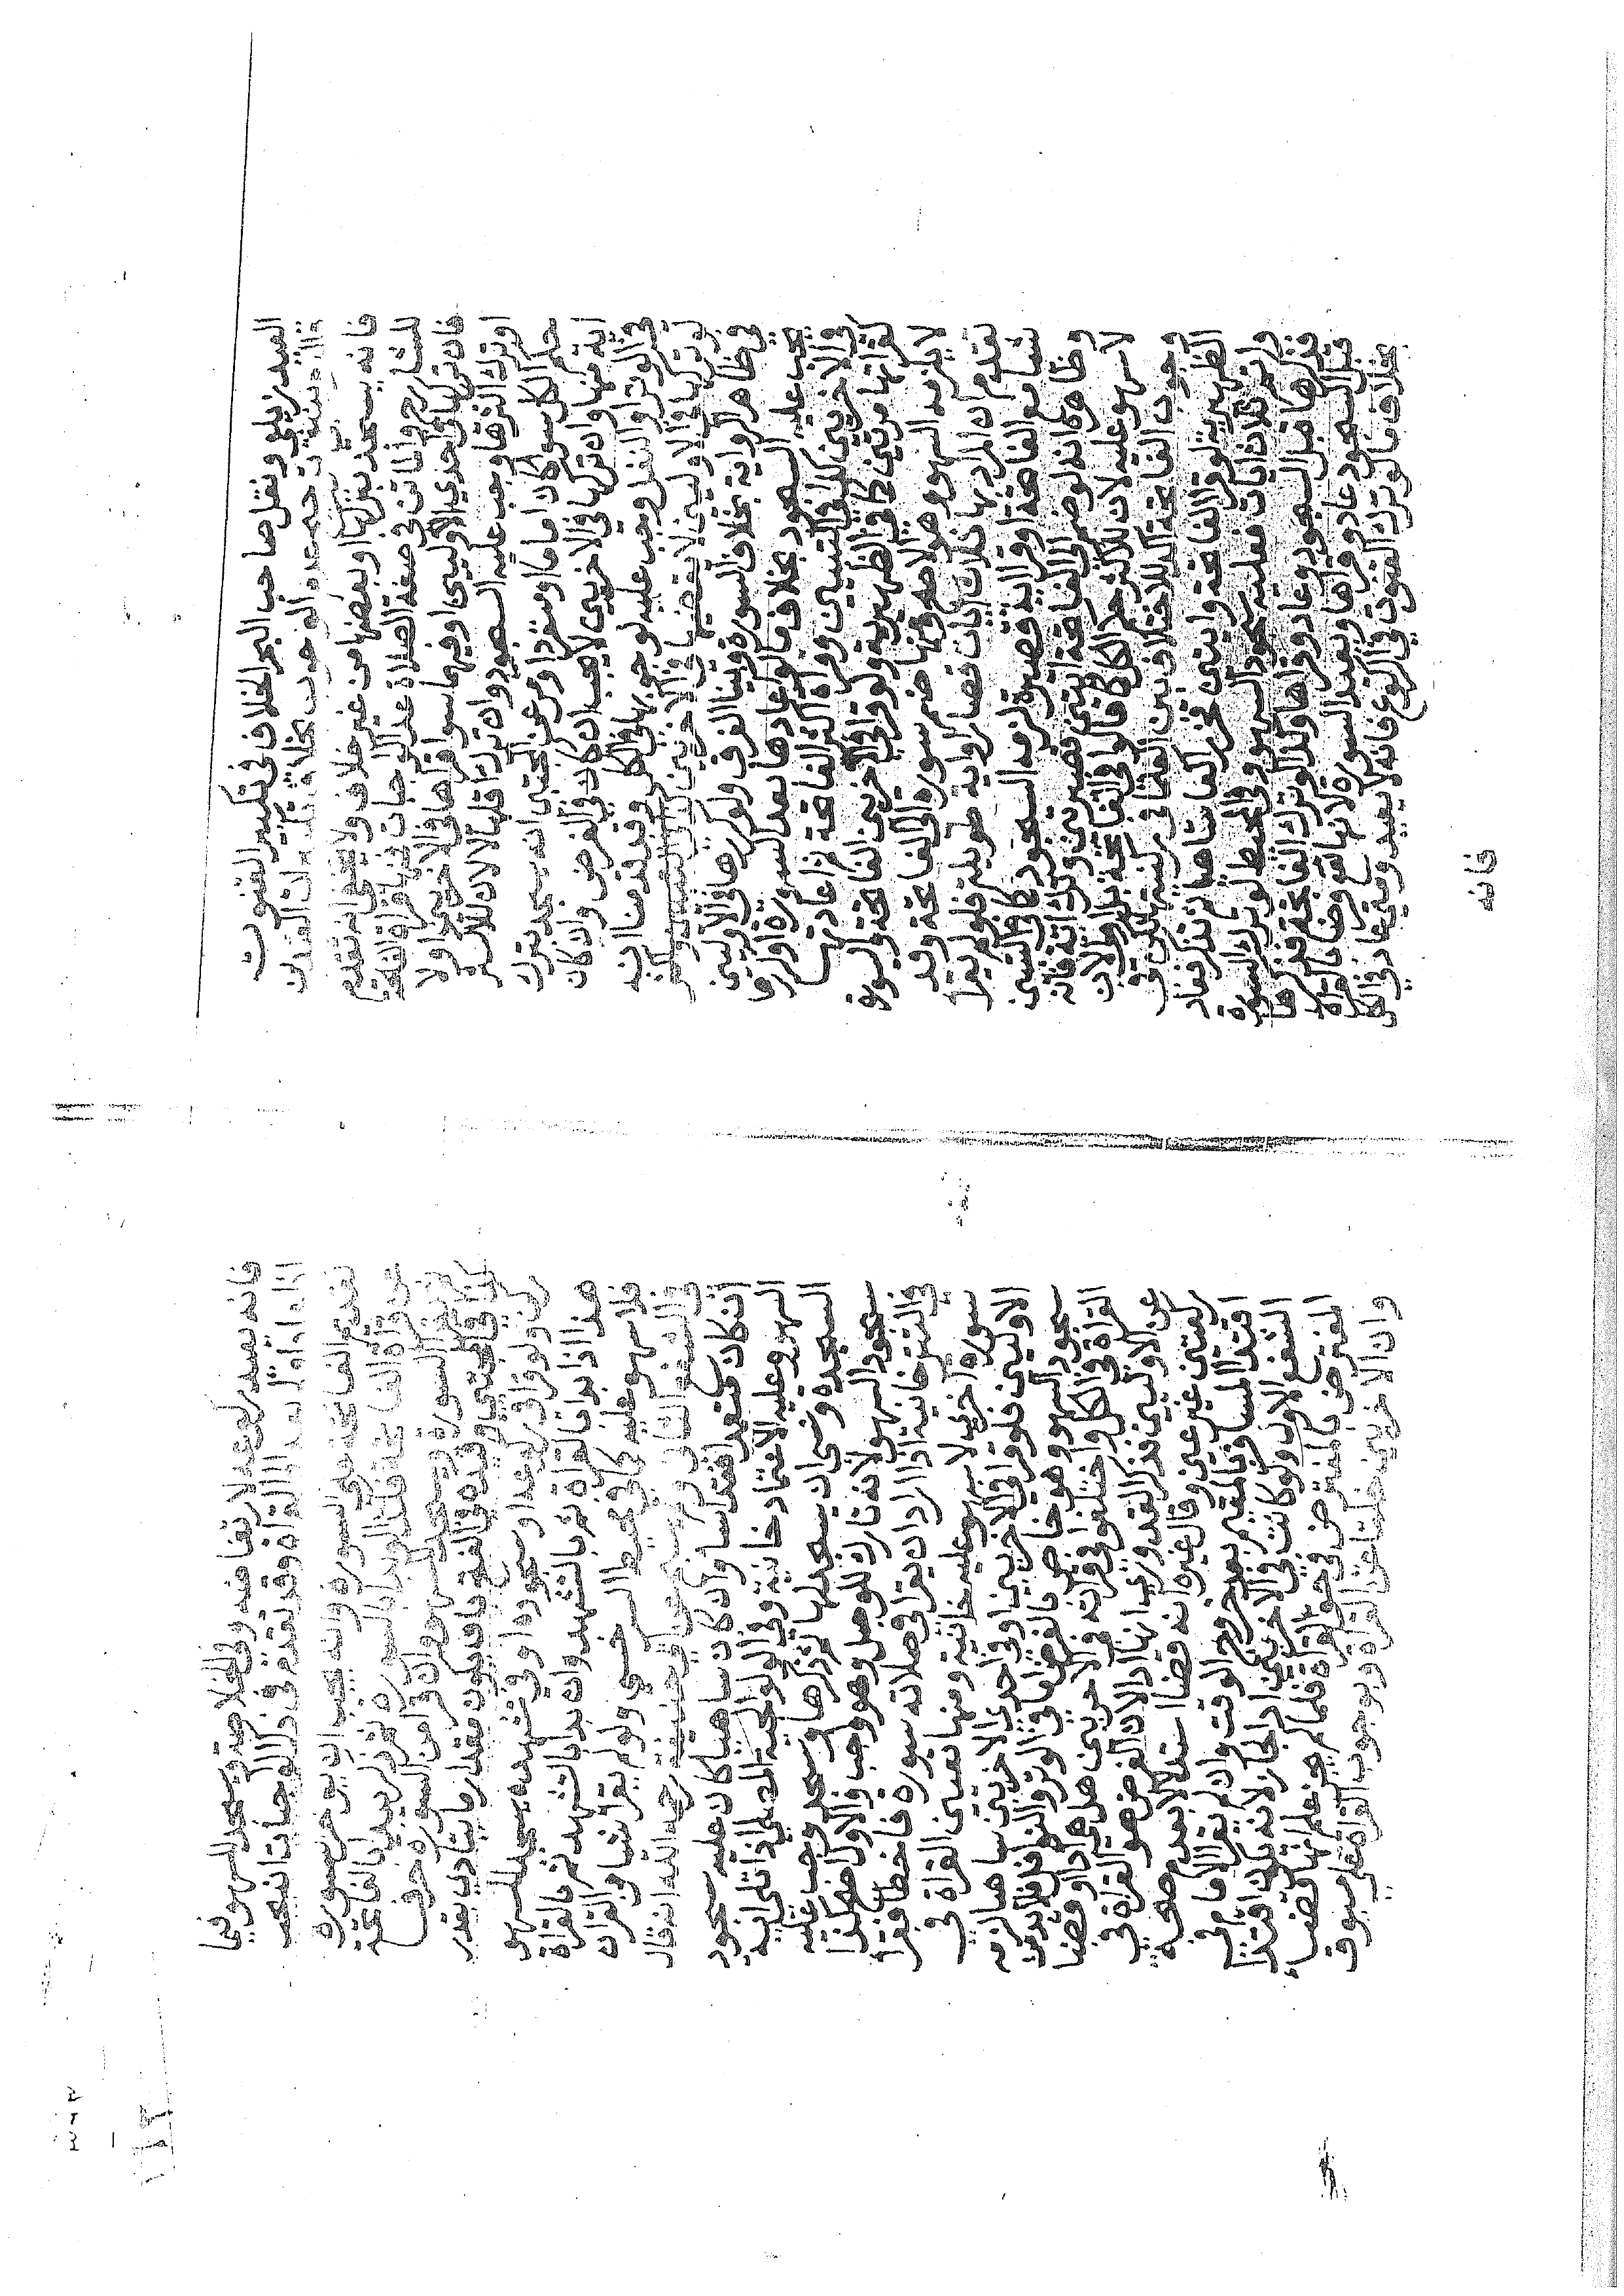 العيد زيلعي ونقل صاحب البحر الخلاف في تكبير القنوت
فانه يسجد بتركها او بعضها من غير خلاف ولا يخفى انه تقدم
للشارح في صفة الصلاة عد الواجبات قراة الفاتحة
فان تركها في احدي الاوليين او فيهما سوا قراها في الاخريين او لا
او ترك اكثرها وجب عليه السجود وان ترك اقلها لا لان للاكثر
حكم الكل سوا كان اماما او منفردا وعن المجتبى انه يسجد بترك
اية منها وان تركها في الاخريين لا يجب ان كان في الفرض وان كان
في الوتر او النفل وجب عليه لوجوبها في الكل وقد قدمنا ان
تركها في الاوليين لا يقضيها في الاخريين
في ظاهر الرواية بخلاف السورة وبينا الفرق ولو كررها في الاوليين
يجب عليه السجود بخلاف ما لو اعادها بعد السورة او كررها
في الاخريين كما في التبيين ولو قراة اكثر الفاتحة ثم اعادها
لقراتها مرتين كما في الظهيرية ولو قرا في الاخريين الفاتحة والسورة
لا يلزمه السهو وهو الاصح ومنها ضم سورة الى الفاتحة وقد
تقدم ان المراد بها ثلاث ايات قصار او اية طويلة فلو لم يقرا
شيا مع الفاتحة او قرا اية قصيرة لزمه السجود كما في التبيين
وظاهره انه لو ضم الى الفاتحة ايتين قصيرتين وترك اية فانه
لا سهو عليه لان للاكثر حكم الكل كما قالوا في الفاتحة بل اولى لان
وجوب الفاتحة اكد للاختلاف بين العلما في ركنيتها لكن في
الظهيرية لو قرا الفاتحة وايتين فخر راكعا ساهيا ثم تذكر عاد
واتم ثلاث ايات وعليه سجود السهو وفي المحيط لو ترك السورة
فذكرها قبل السجود عاد وقراها وكذا لو ترك الفاتحة فذكرها
قبل السجود عاد وقراها ويعيد السورة لانها تقع فرضا بالقراة
بخلاف ما لو ترك القنوت في الركوع فانه لا يعيد ومتى عاد في الكل
فانه
فانه يعيد ركوعه لارتفاضه وفي الخلاصة ويسجد للسهو فيما
اذا عاد او لم يعد الى القراة وقد تقدم في ذكر الواجبات انه يجب
تقديم الفاتحة على السورة وانه يجب ان يوخر السورة
عن قراة الفاتحة فلو بدا بالسورة ثم تذكر يبدا بالفاتحة
ثم السورة ويسجد للسهو ولو قرا من السورة حرفا
كذا في المجتبى وقيده في الفتح بان يكون مقدار ما يتادى به
ركن ولو قرا في ركوعه او سجوده او في تشهده يسجد للسهو
هذا اذا بدا بالقراة ثم بالتشهد وان بدا بالتشهد ثم بالقراة
فلا سهو عليه كما في محيط السرخسي ولو لم يقرا شيا من القران
في الشفع الثاني ولم يسبح عن ابي حنيفة رحمه الله انه قال
ان كان متعمدا فقد اسا وان كان ساهيا كان عليه سجود
السهو وعليه الاعتماد خانية وفي الولوالجية المصلي اذا تلى اية
السجدة ونسي ان يسجد لها ثم ذكرها وسجد وجب عليه
سجود السهو لانه تارك للوصل وهو واجب والاول اصح كذا
في التترخانية اذا اراد ان يقرا في صلاته سورة فاخطا فقرا
سورة اخرى لا سهو عليه خانية ومنها تعيين القراة في
الاوليين فلو قرا في الاخريين او في احدى الاخريين ساهيا لزمه
سجود السهو وهو خاص بالفرض اما في الوتر والنوافل فلا بد من
القراة في الكل واختلفوا في قراته في الاخريين هل هي ادا او قضا
عن الاوليين فذكر القدوري انها ادا لان الفرض هو القراة في
ركعتين غير عين وقال غيره انه قضا استدلالا بعدم صحة
اقتدا المسافر بالمقيم بعد خروج الوقت وان لم يقرا الامام في
الشفع الاول ولو كانت في الاخريين ادا لجاز لانه يكون اقتدا
المفترض بالمفترض في حق القراة فلما لم يجز علم انها قضا
وان الاخريين خلتا عن القراة وبوجوب القراة على مسبوق